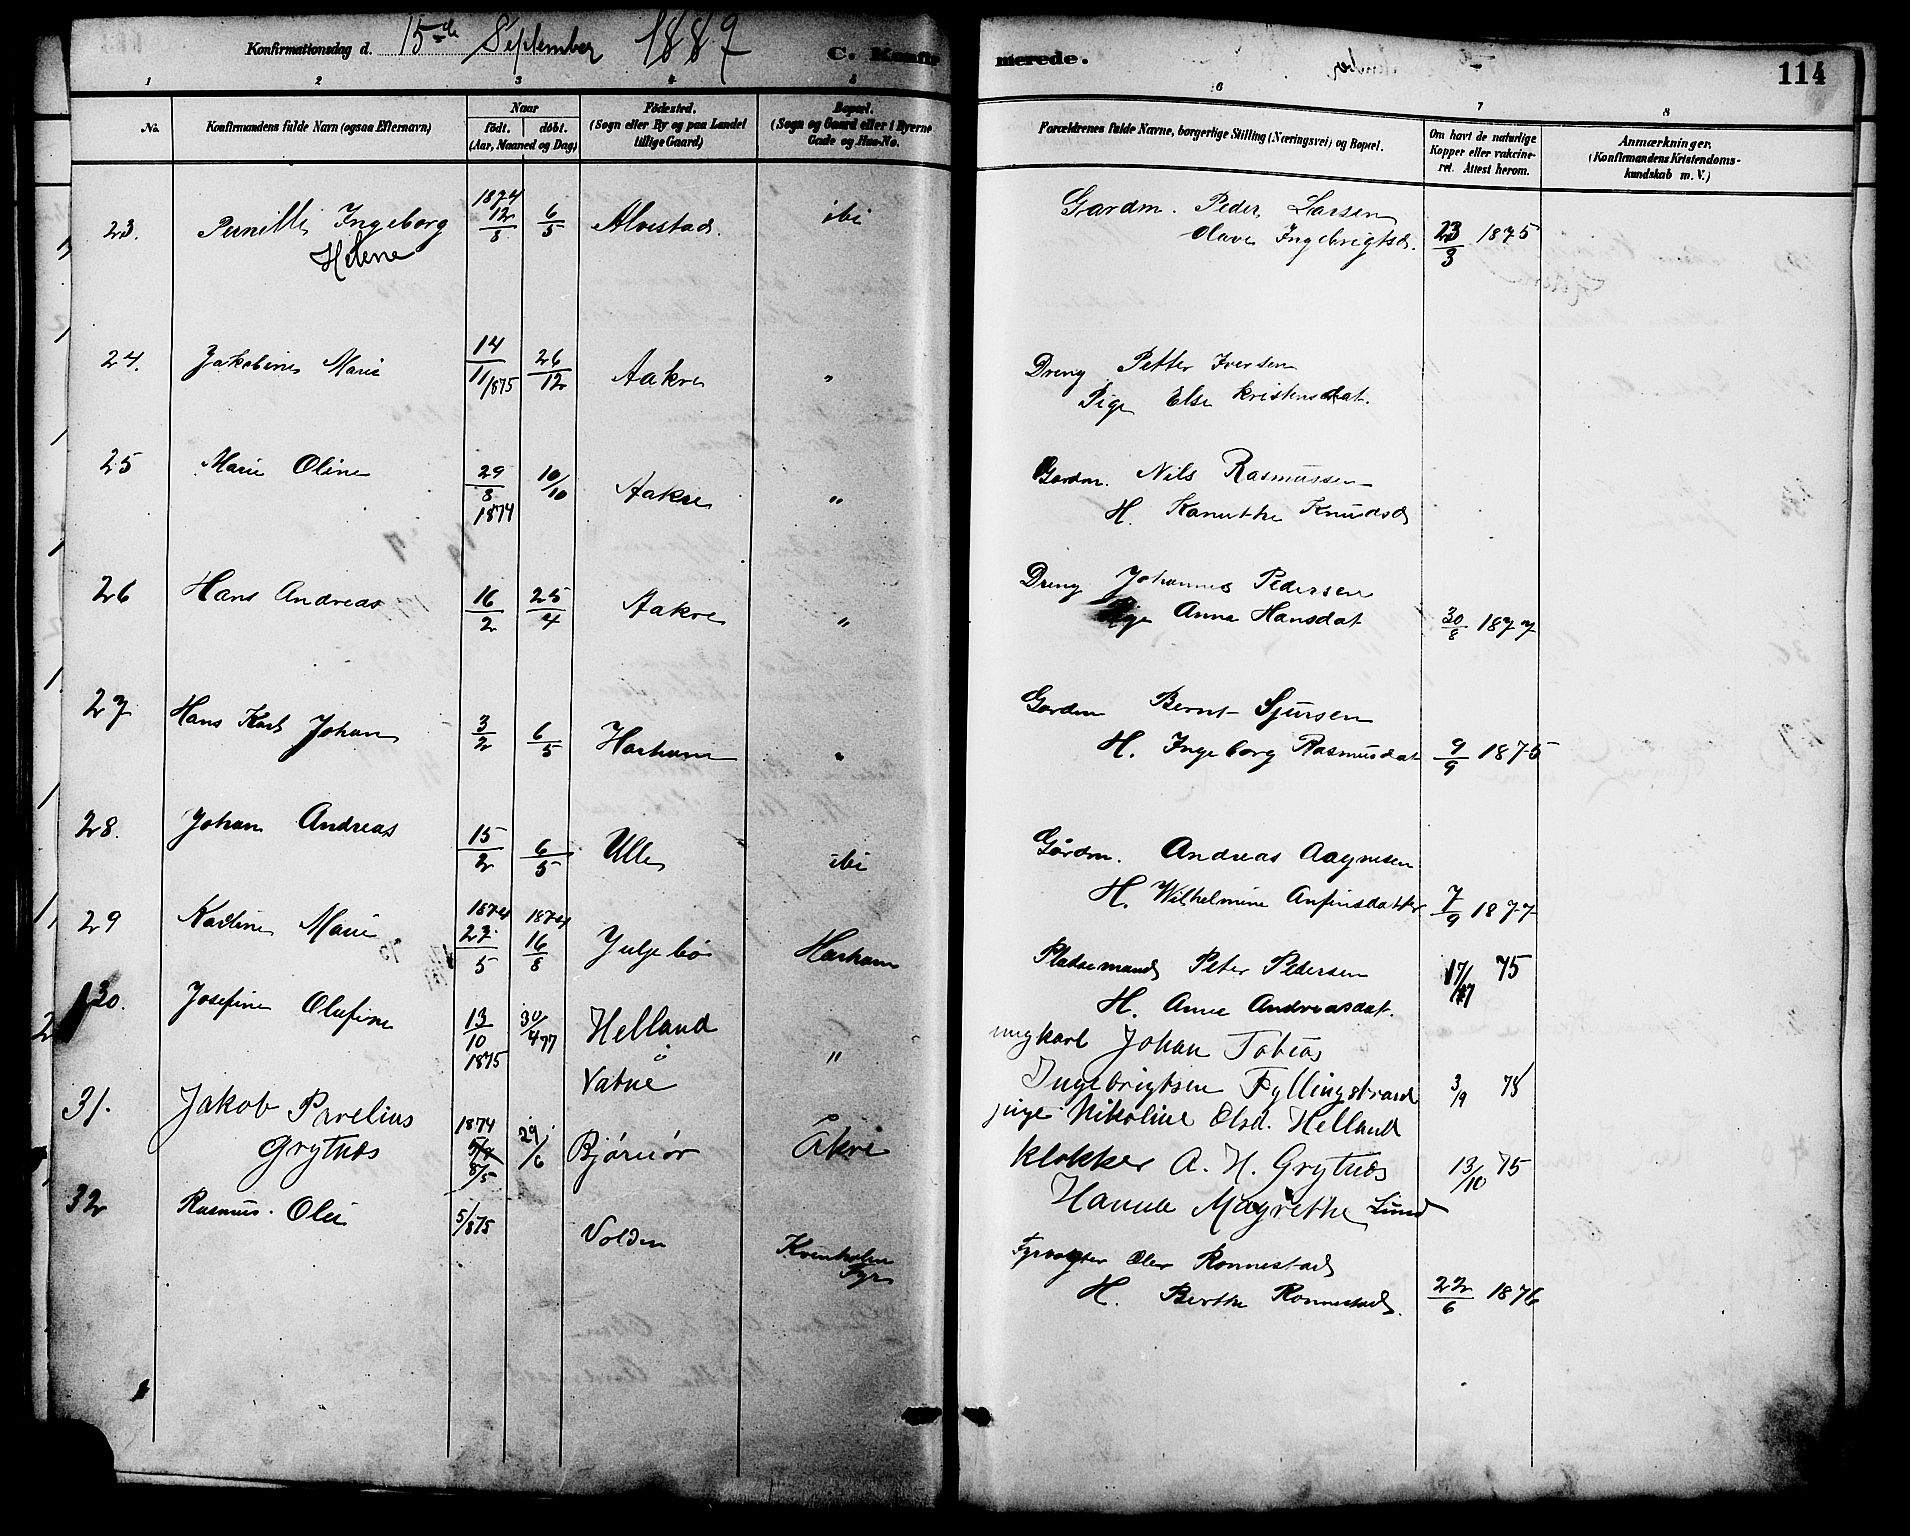 Konfirmationsdag d. 15de September 1889
C. Konfirmerede.
114
1 2 3 4 5 6 7 8
No.
Konfirmandens fulde Navn (ogsaa Efternavn)
Naar
født. døbt.
(Aar, Maaned og Dag)
Fødested.
(Sogn eller By og paa Landet tillige Gaard)
Bopæl.
(Sogn og Gaard eller i Byerne Gade og Hus-No.
Forældrenes fulde Navne, borgerlige Stilling (Næringsvei) og Bopæl.
Om havt de naturlige Kopper eller vakcineret. Attest herom.
Anmærkninger.
(Konfirmandens Kristendomskundskab m. V.)
23. Pernille Ingeborg Helene 1874 12/5 6/5 Alvestad ibi Gardm. Peder Larsen
Olave Ingebrigtsd. 23/3 1875
24. Jakobine Marie 14/11 1875 26/12 Aakre " Dreng Petter Iversen
Pige Else Kristensdat.
25 Marie Oline 29/8 1874 10/10 Aakre " Gardm. Nils Rasmussen
H. Kanutke Knudsd
26 Hans Andreas 16/2 25/4 Aakre " Dreng Johannes Pedersen
Pige Anna Hansdat 30/8 1877
27 Hans Karl Johan 3/2 6/5 Harham " Gardm Bernt Sjursen
H. Ingeborg Rasmusdat 9/9 1875
28. Johan Andreas 15/2 6/5 Ulle ibi Gårdm. Andreas Aagnesen
H. Wilhelmine Anfinsdatter 7/9 1877
29 Karline Marie 1874 27/5 1874 16/8 Harham Pladsemand Peter Pedersen
H. Anne Andreasdat. 17/ 75
30. Josefine Olufine 13/10 1875 30/4 77 Helland Vatne " ungkarl Johan Tobias
Ingebrigtsen Fyllingstrand 3/9 78
pige Nikoline Olsd. Helland
31. Jakob Pavelius Grytnæs 1874 8/5 29/6 Bjørnør Åkre Klokker A. H. Grytnæs 13/10 75
Hanna Magrethe Lund
32 Rasmus Olei 5/ 875 Volden Kvenholm Fyr Fyrvogter Olav Ronnestad
H. Berthe Ronnestad. 22/6 1876